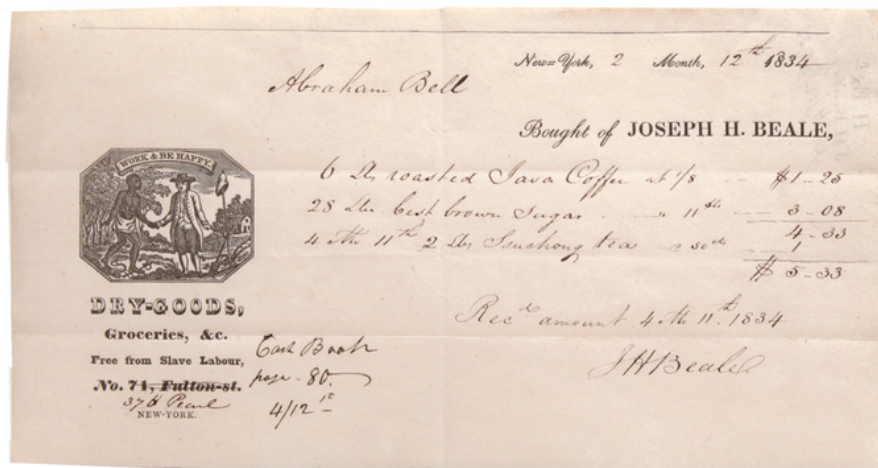 New=York, 2 Month, 12th 1834
Abraham Bell
Bought of JOSEPH H. BEALE,
6 lbs roasted Java Coffee at 1/8 $1-25
28 lbs best brown Sugar " 11 cts 3-08
4-33
4 mth 11th 2 lbs Souchong tea 50cts 1
$5-33
Recd amount 4 mth 11th 1834
JHBeale
WORK & BE HAPPY.
DRY-GOODS,
Groceries, &c.
Free from Slave Labour,
No. 71, Fulton-st.
376 Pearl
NEW-YORK.
Cash Book
page - 80.
4/12